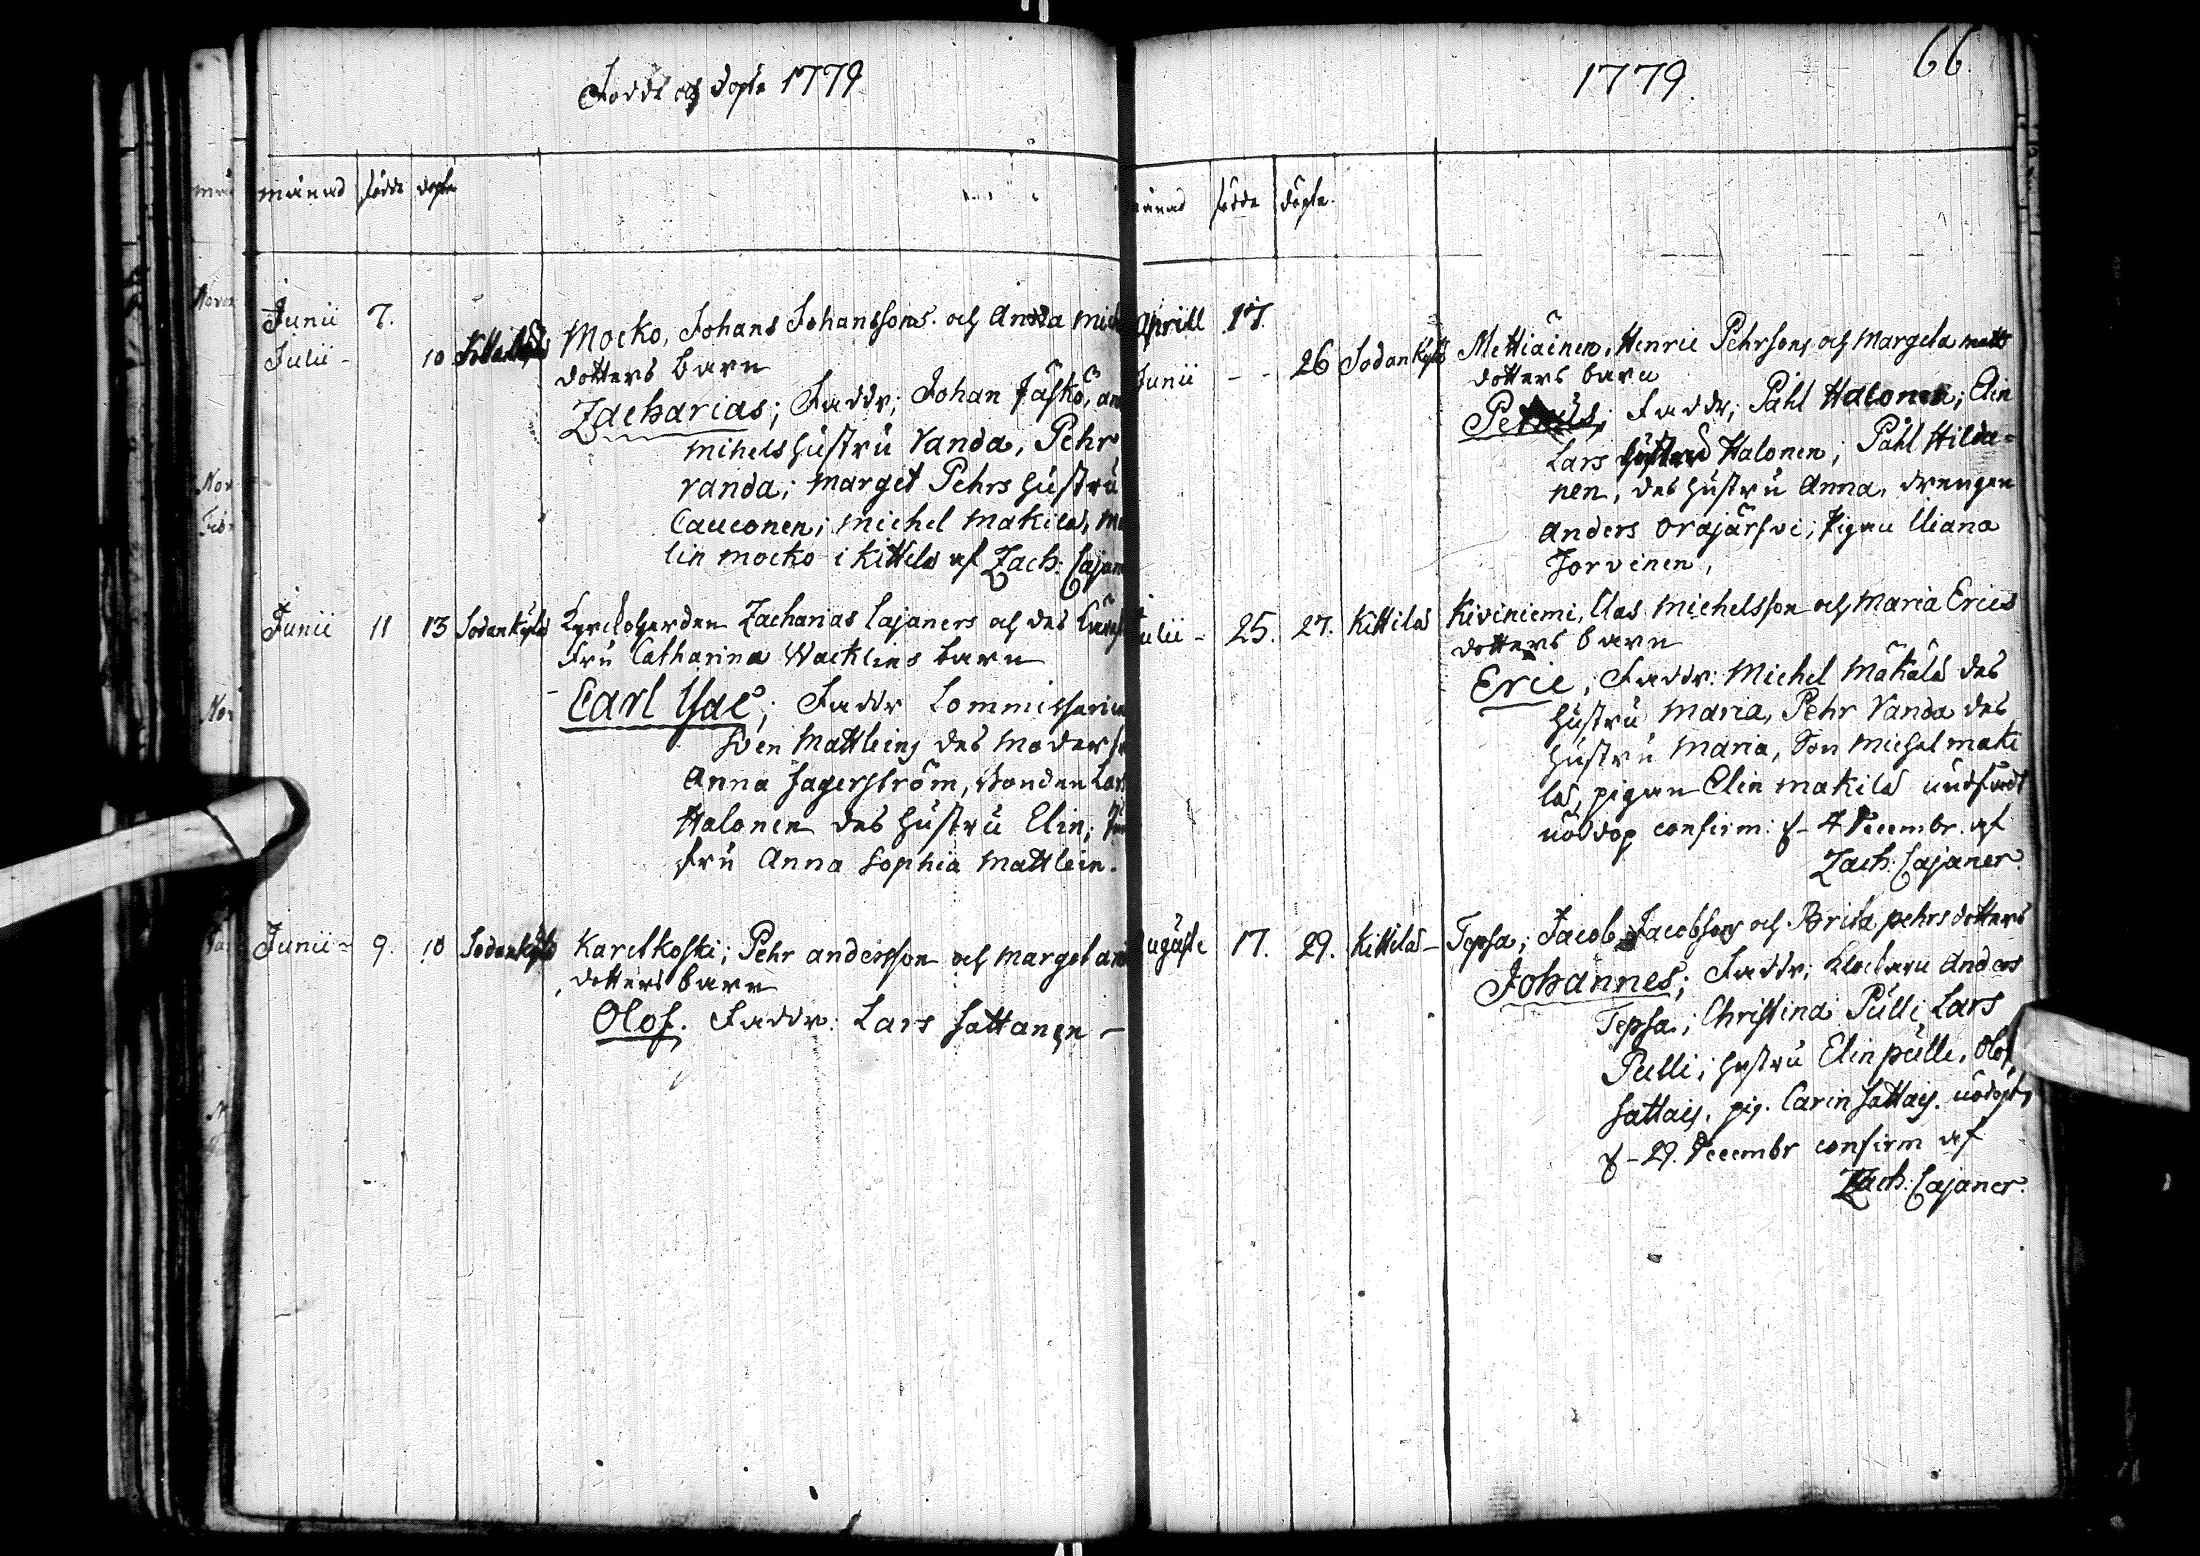 Födde och döpte 1779
månad födde döpte
Junii 7.
Julii - 10 Mocko, Johans Johanssons och Anna Mich
dotters barn
Zacharias; Faddr; Johan Jäskö, an
Michels hustru Vanda, Pehr
Vanda; Marget Pehrs hustru
Cauconen; Michel Makila, Ma
lin Mocko i Kittila af Zach: Cajan
Junii 11 13 Sodankylä Kyrckoherden Zacharias Cajaners och des
Fru Catharina Wacklins barn
Carl Isac; Faddr Commissarien
Sven Mattleins des Moder
Anna Fagerström, Bonden Lars
Halonen des hustru Elin;
fru Anna Sophia Mattlein.
Junii - 9. 10 Sodankylä Karelkoski; Pehr Andersson och Marget and
dotters barn
Olof. Faddr: Lars Sattanen -
1779. 66.
månad födde döpte.
Aprill 17.
Junii - - 26 Sodankylä Mettiäinen, Henric Pehrsons och Margeta Matts
dotters barn
Faddr; Påhl Halonen; Elin
Lars Halonen; Påhl Hilda-
nen, des hustru Anna, drengen
Anders Orajärfvi; Pigan Uliana
Torvinen,
Julii - 25. 27. Kittila Kiviniemi, Clas Michelsson och Maria Erics
dotters barn
Eric; Faddr: Michel Makala des
hustru Maria, Pehr Vanda des
hustru Maria, Son Michel Maki
la, pigan Elin Makila
nöddop confirm: d - 4 Decembr. af
Zach: Cajaner.
Auguste 17. 29. Kittila - Tepsa; Jacob Jacobsons och Brita Pehrsdotters
Johannes; Faddr; Klockaren Anders
Tepsa; Christina Pulli Lars
Pulli; hustru Elin Pulli, Olof
Sattais, pig. Carin Sattais. nöddopt
d - 29. Decembr confirm af
Zach: Cajaner.